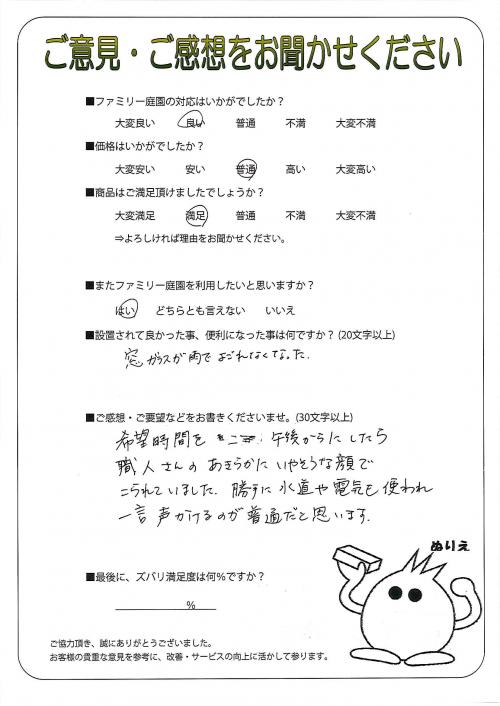 ご意見・ご感想をお聞かせください
■ファミリー庭園の対応はいかがでしたか?
大変良い 良い 普通 不満 大変不満
■価格はいかがでしたか?
大変安い 安い 普通 高い 大変高い
■商品はご満足頂けましたでしょうか?
大変満足 満足 普通 不満 大変不満
⇒よろしければ理由をお聞かせください。
■またファミリー庭園を利用したいと思いますか?
はい どちらとも言えない いいえ
■設置されて良かった事、便利になった事は何ですか? (20文字以上)
窓ガラスが雨でよごれなくなった.
■ご感想・ご要望などをお書きくださいませ。(30文字以上)
希望時間を 午後からにしたら
職人さんのあきらかにいやそうな顔で
こられていました. 勝手に水道や電気も使われ
一言声かけるのが普通だと思います.
ぬりえ
■最後に、ズバリ満足度は何%ですか?
%
ご協力頂き、誠にありがとうございました。
お客様の貴重な意見を参考に、改善・サービスの向上に活かして参ります。